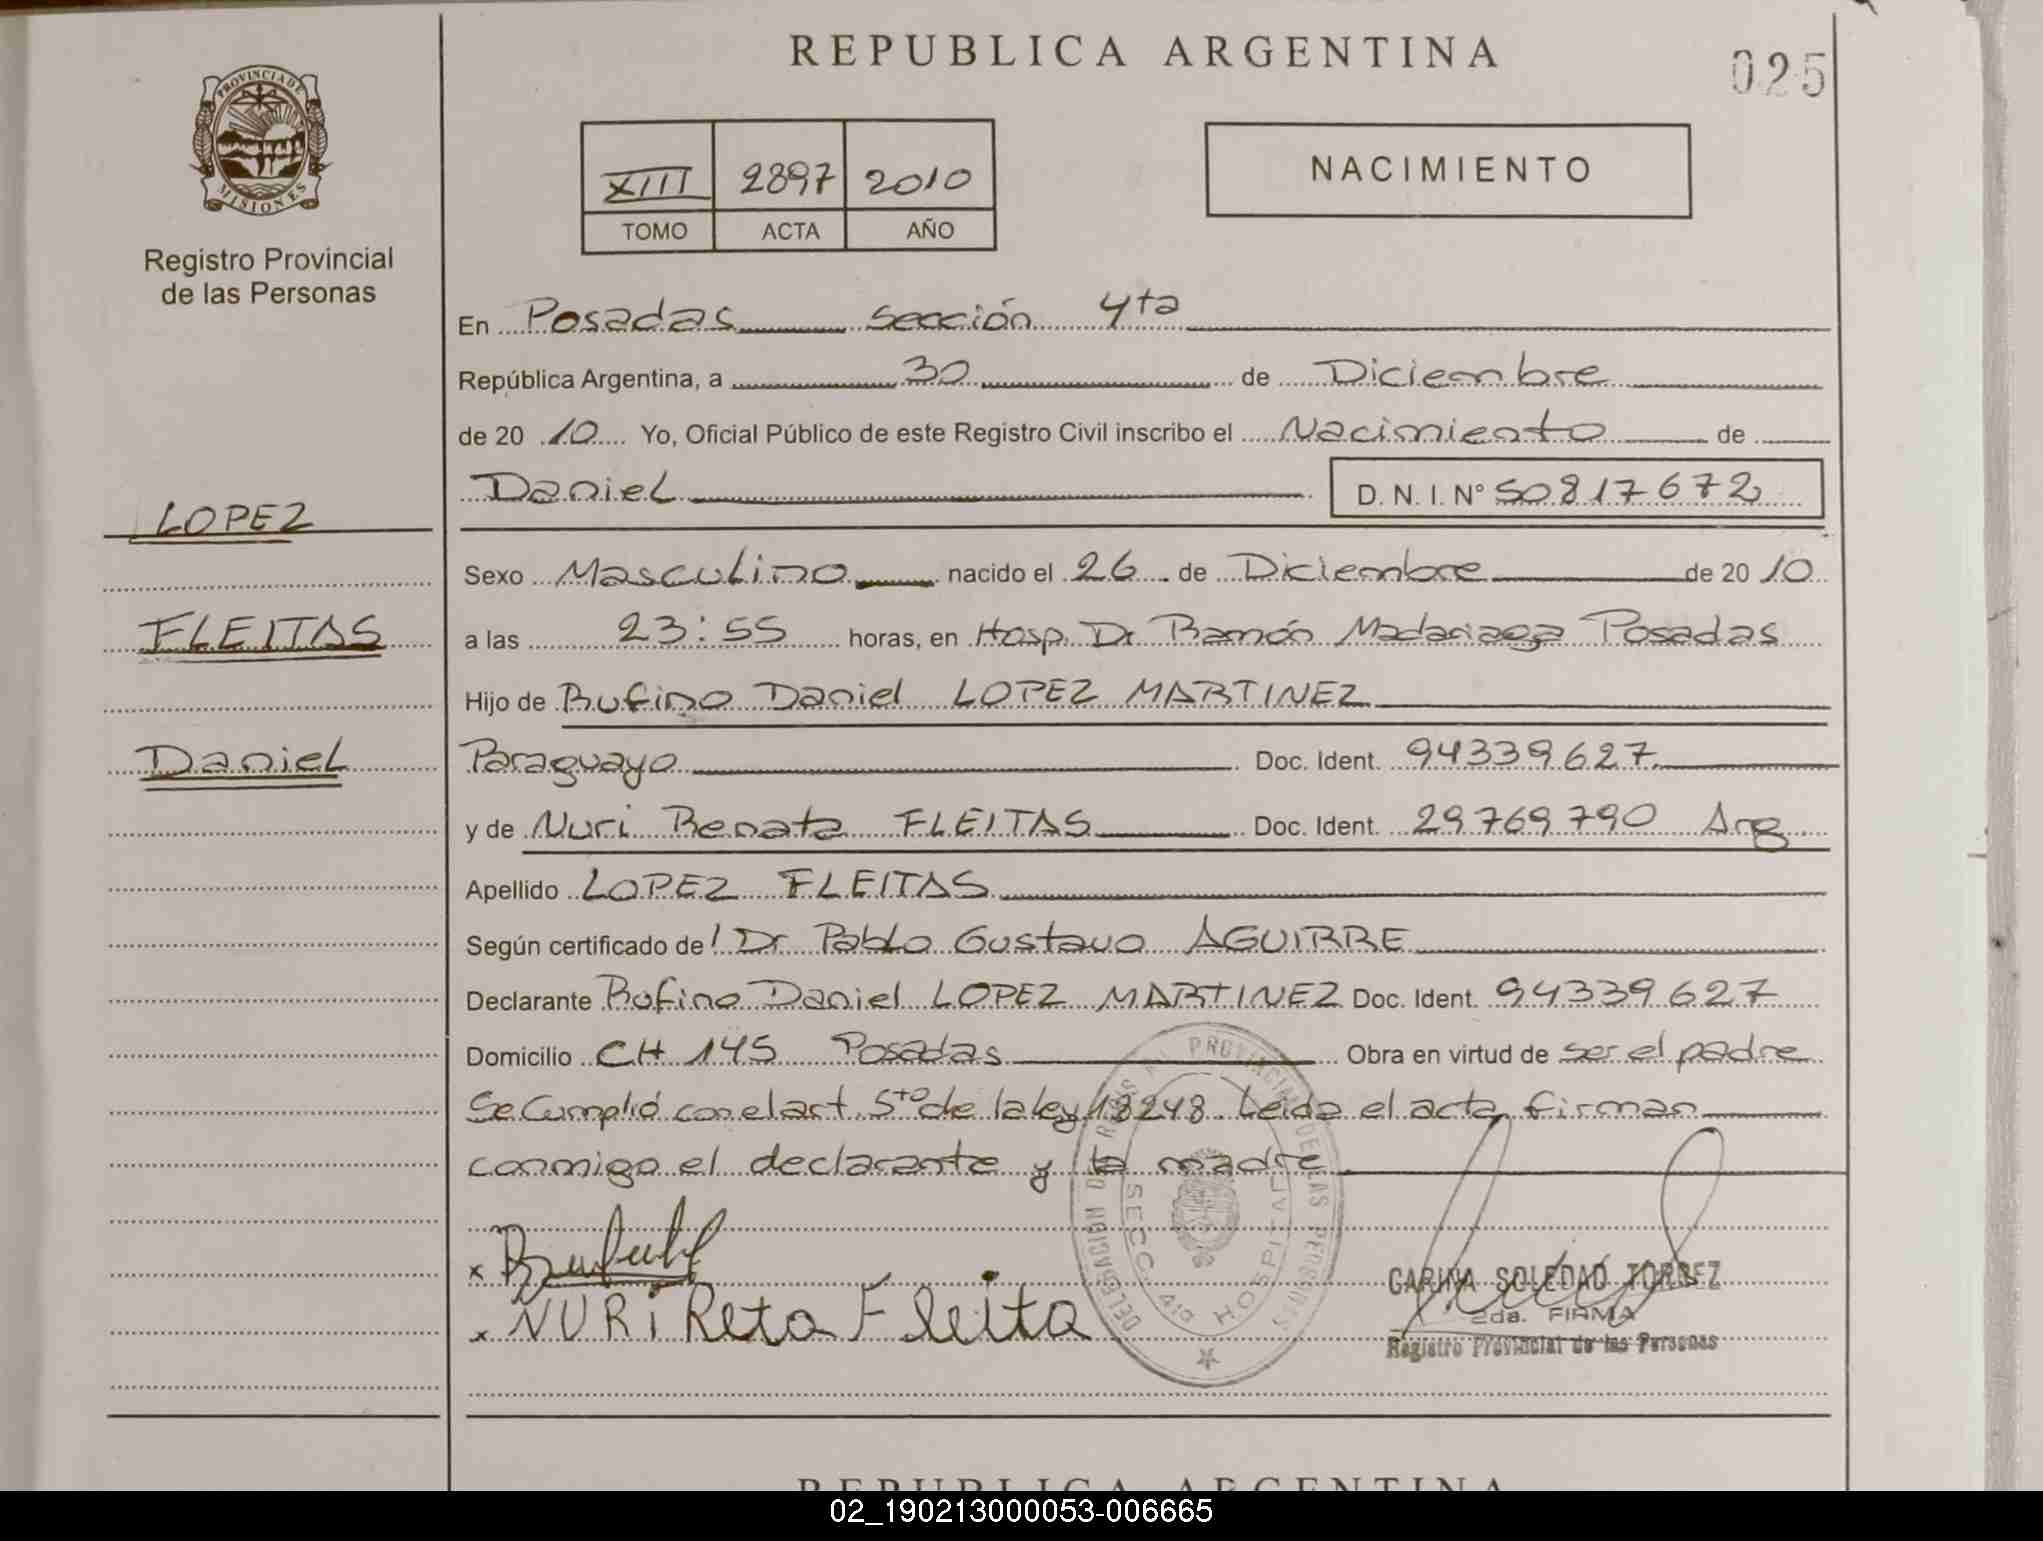 REPUBLICA ARGENTINA
025
PROVINCIA DE
MISIONES
Registro Provincial
de las Personas
XIII 2897 2010
TOMO ACTA AÑO
NACIMIENTO
En Posadas sección 4ta
República Argentina, a 30 de Diciembre
de 20 10 Yo, Oficial Público de este Registro Civil inscribo el Nacimiento de
Daniel D. N. I. N° 50817672
LOPEZ
FLEITAS
Daniel
Sexo Masculino nacido el 26 de Diciembre de 20 10
a las 23:55 horas, en Hosp. Dr Ramón Madariaga Posadas
Hijo de Rufino Daniel LOPEZ MARTINEZ
Paraguayo Doc. Ident. 94339627
y de Nuri Renata FLEITAS Doc. Ident. 29769790 Arg
Apellido LOPEZ FLEITAS
Según certificado de Dr Pablo Gustavo AGUIRRE
Declarante Rufino Daniel LOPEZ MARTINEZ Doc. Ident. 94339627
Domicilio CH 145 Posadas Obra en virtud de ser el padre
Se Cumplió con el art 5to de la ley 18248. Leida el acta firman
conmigo el declarante y la madre
x
x NURi Reta Fleita
SECC. 4ta HOSPITAL
CARINA SOLEDAD TORREZ
2da. FIRMA
Registro Provincial de las Personas
REPUBLICA ARGENTINA
02_190213000053-006665